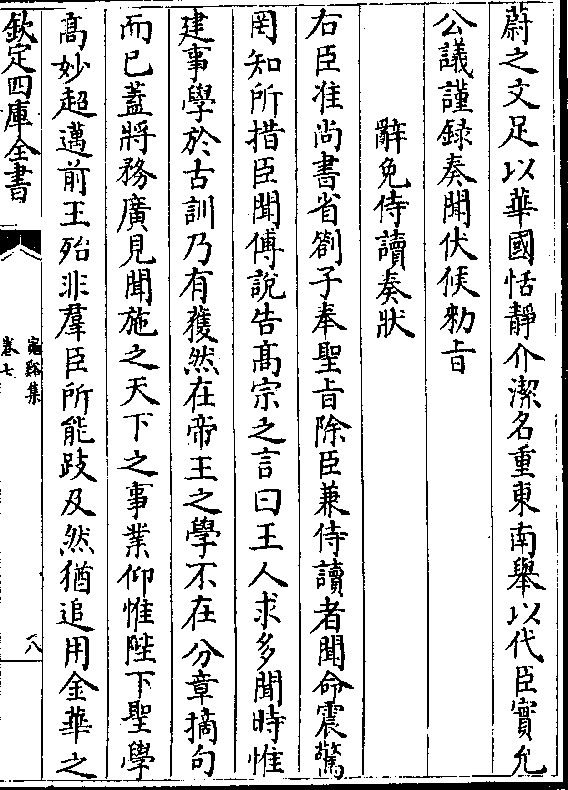 蔚之文足以華國恬靜介潔名重東南舉以代臣實允
公議謹録奏聞伏候勅旨
辭免侍讀奏狀
右臣准尚書省劄子奉聖旨除臣兼侍讀者聞命震驚
罔知所措臣聞傅說告髙宗之言曰王人求多聞時惟
建事學於古訓乃有獲然在帝王之學不在分章摘句
而已葢將務廣見聞施之天下之事業仰惟陛下聖學
髙妙超邁前王殆非羣臣所能跂及然猶追用金華之
欽定四庫全書
龜谿集
卷七
八